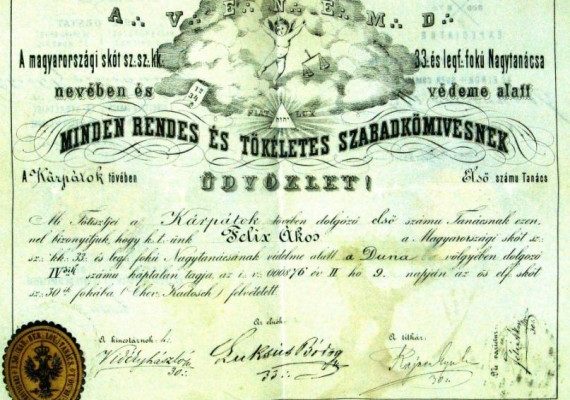 A∴ V∴ E∴ N∴ E∴ M∴ D∴
A magyarországi skót sz. sz. kk. 33. és legf. fokú Nagytanácsa
nevében és védeme alatt
FIAT LUX
MINDEN RENDES ÉS TÖKÉLETES SZABADKÖMIVESNEK
A Kárpátok tövében Első számu Tanács
ÜDVÖZLET!
Mi Tisztjei a Kárpátok tövében dolgozó első számu Tanácsnak ezen-
nel bizonyitjuk, hogy k. t. ünk Felix Ákos a Magyarországi skót sz.
sz. kk. 33. és legf. fokú Nagytanácsának védelme alatt a Duna völgyében dolgozó
IVik számu káptalan tagja, az i. v. 000876 év II hó 9. napján az ős elf skót
sz. 30ik fokába (Chev. Kadosch) felvétetett.
Az elnök
A kincstárnok A titkár
30∴ 33∴ 30∴